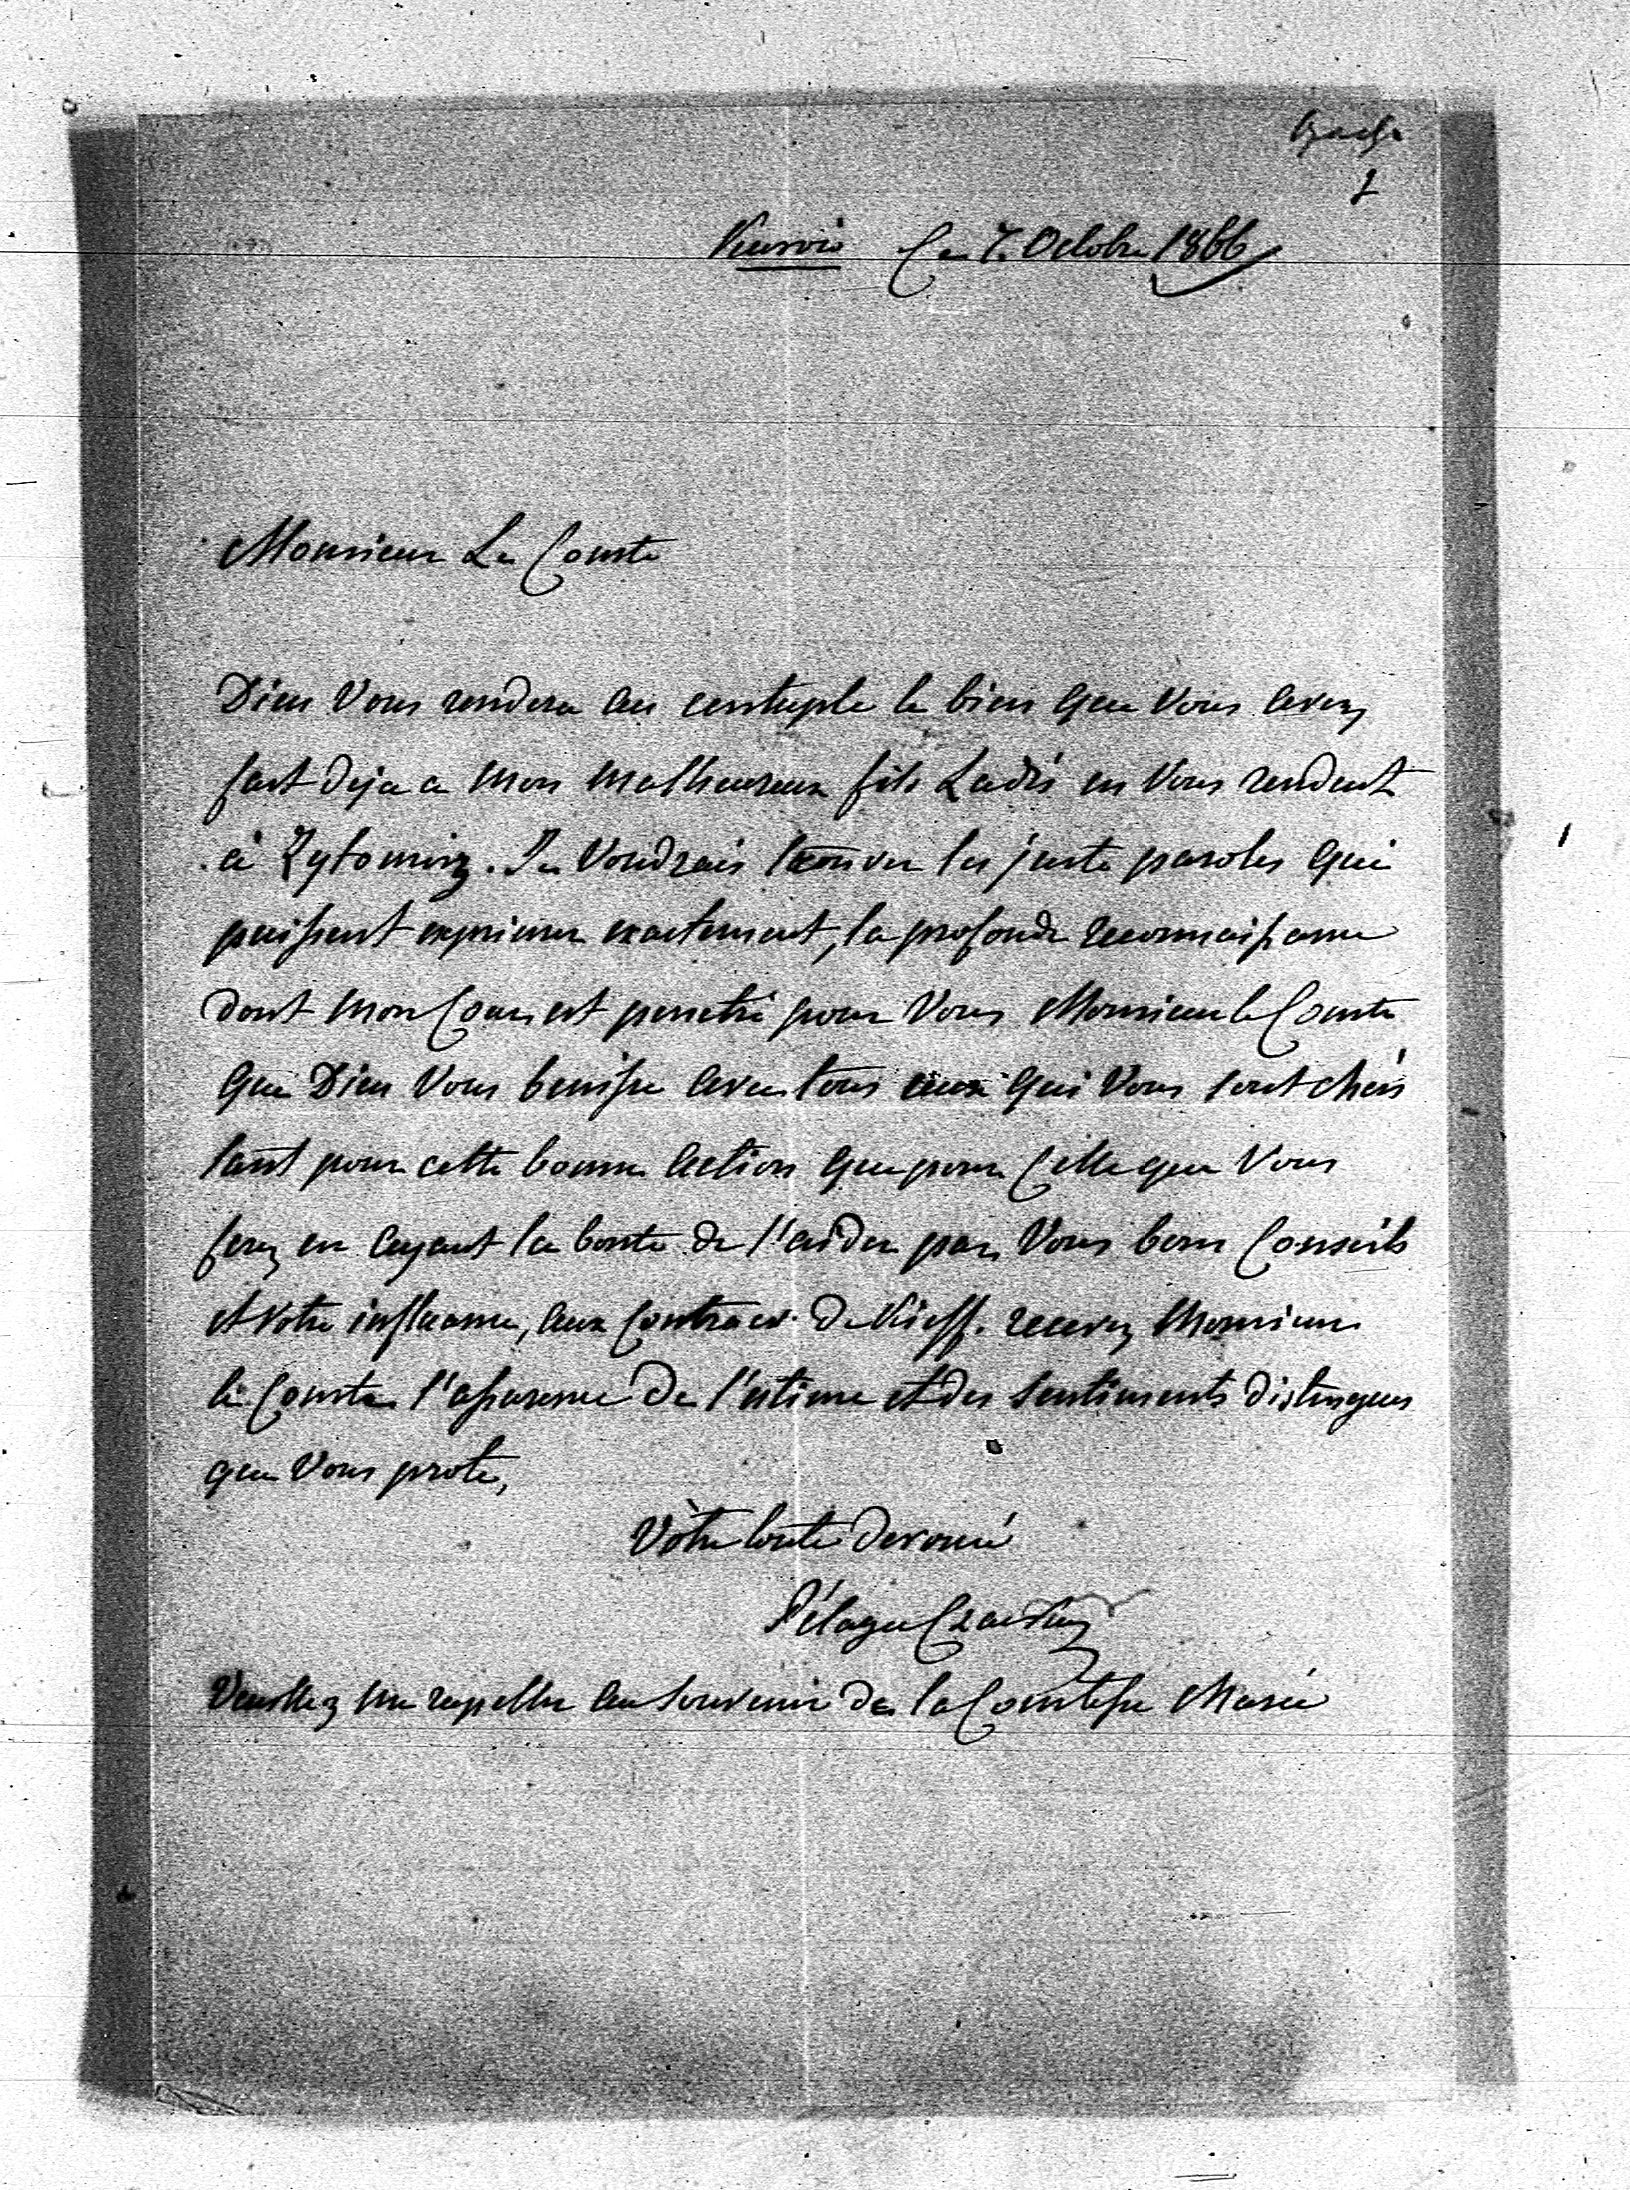 Le 7. Octobre 1866
Monsieur Le Comte
Dieu Vous rendera au centuple le bien que Vous avez
fait deja a mon malheureux fils Ladis en Vous rendent
à Zytomirz. Je Voudrais trouver les juste paroles qui
puissent exprimer exactement, la profonde reconnaissance
dont mon Coeur est penetré pour Vous Monsieur le Comte
que Dieu Vous benisse avec tous ceux qui Vous sont chers
tant pour cette bonne action que pour Celle que Vous
ferez en ayant la bonte de l'aider par Vous bons Conseils
et votre influance, aux Contracts de Kieff. recevez Monsieur
le Comte l'assurence de l'estime et des sentiments distingues
que Vous porte,
Vôtre toute devoué
Pélagie
Veuillez me rapeller au souvenir de la Comtesse Marie